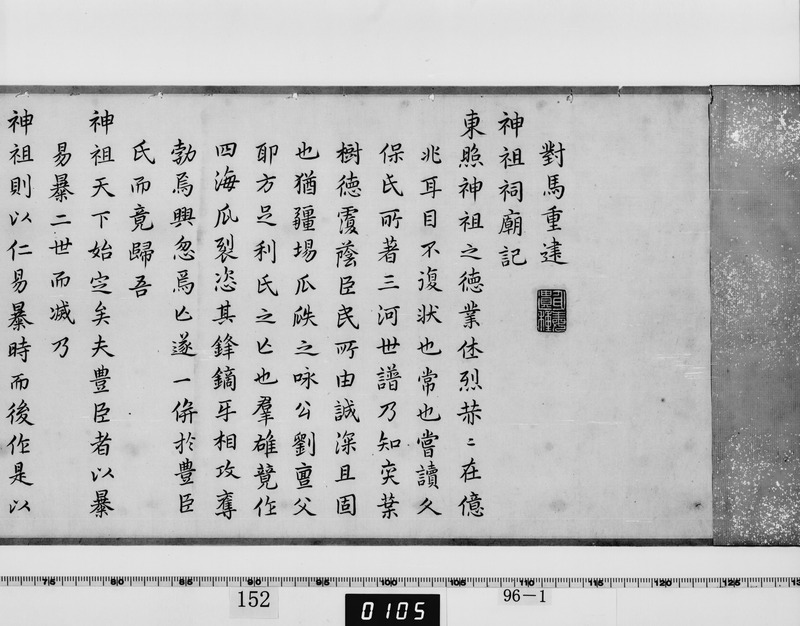 對馬重建
神祖祠廟記
東照神祖之德業休烈赫〻在億
兆耳目不復狀也常也嘗讀久
保氏所著三河世譜乃知奕葉
樹德覆蔭臣民所由誠深且固
也猶疆場瓜瓞之咏公劉亶父
耶方足利氏之亡也羣雄競作
四海瓜裂恣其鋒鏑牙相攻奪
勃焉興忽焉亡遂一併於豊臣
氏而竟歸吾
神祖天下始定矣夫豊臣者以暴
易暴二世而滅乃
神祖則以仁易暴時而後作是以
75 80 85 90 95 100 105 110 115 120 125 13
152
0105
96-1